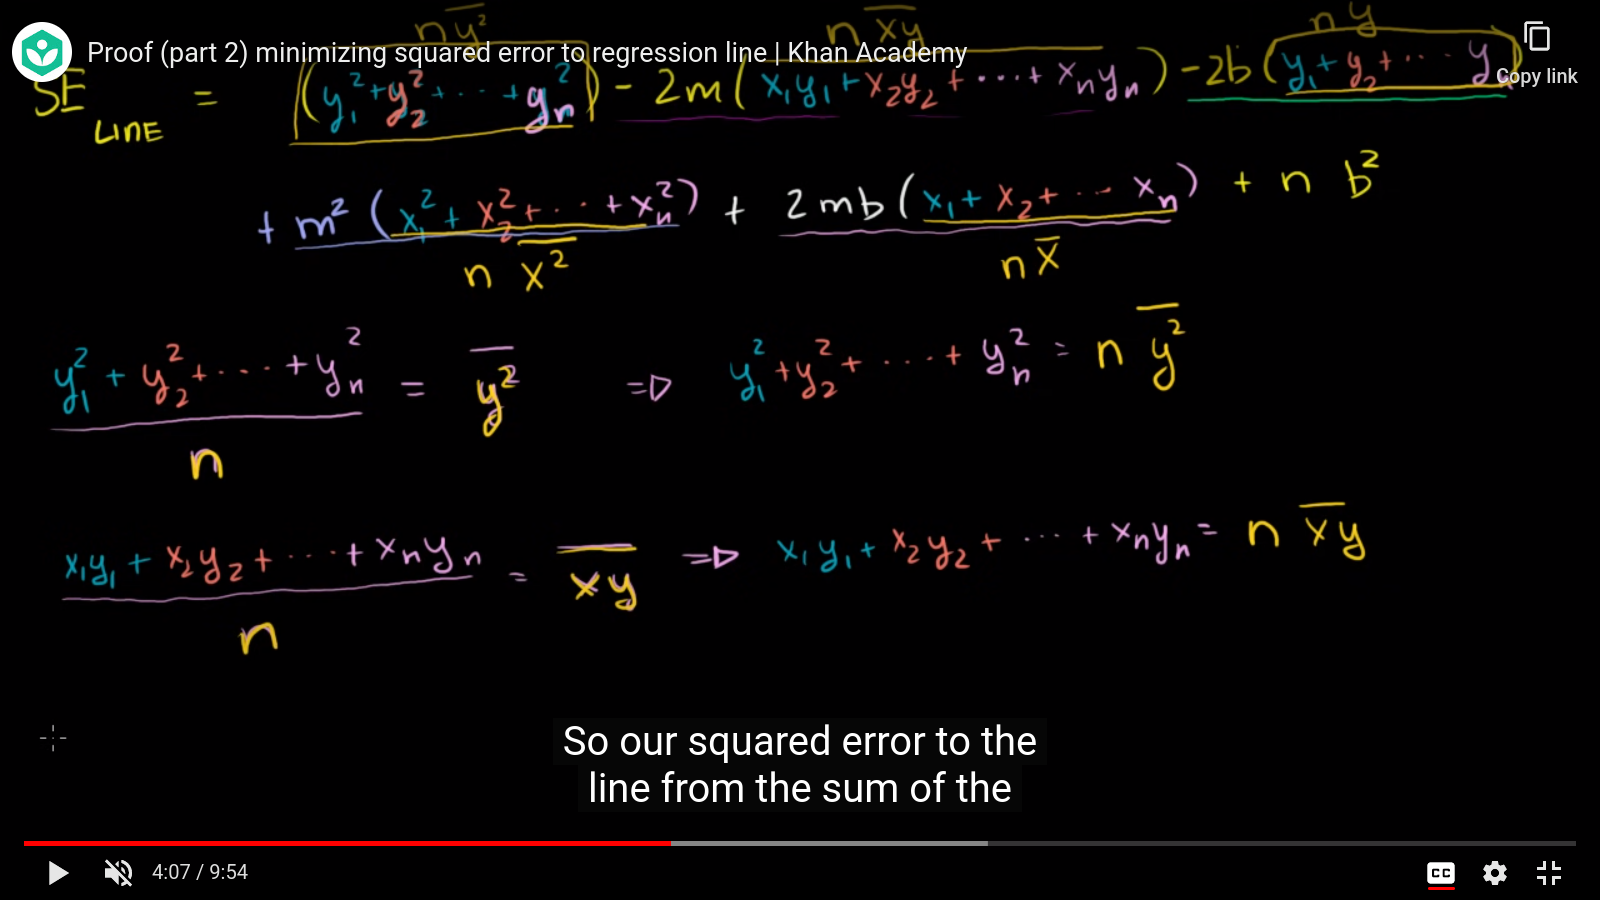 n y̅²̅ n x̅y̅ n y̅
Proof (part 2) minimizing squared error to regression line | Khan Academy
Copy link
SE LINE = (y₁² + y₂² + ··· + yₙ²) - 2m (x₁y₁ + x₂y₂ + ··· + xₙyₙ) - 2b (y₁ + y₂ + ··· yₙ)
+ m² (x₁² + x₂² + ··· + xₙ²) + 2mb (x₁ + x₂ + ··· xₙ) + n b²
n x̅²̅ n x̅
y₁² + y₂² + ··· + yₙ² / n = y̅²̅ ⇒ y₁² + y₂² + ··· + yₙ² = n y̅²̅
x₁y₁ + x₂y₂ + ··· + xₙyₙ / n = x̅y̅ ⇒ x₁y₁ + x₂y₂ + ··· + xₙyₙ = n x̅y̅
So our squared error to the
line from the sum of the
4:07 / 9:54
CC